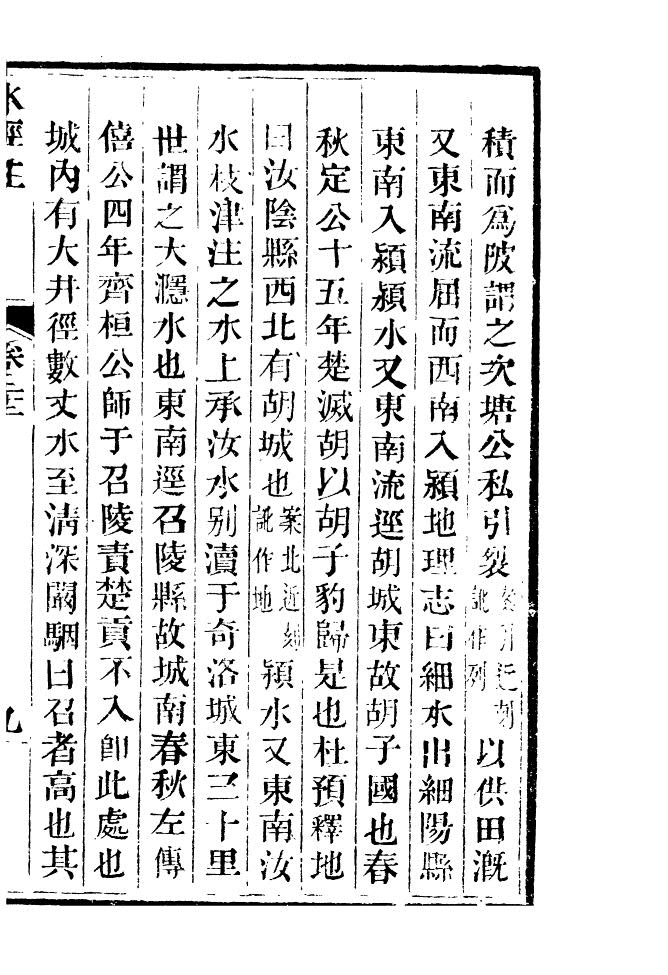 積而爲陂謂之次塘公私引裂案列近刻訛作列以供田漑
又東南流屈而西南入潁地理志曰細水出細陽縣
東南入潁潁水又東南流逕胡城東故胡子國也春
秋定公十五年楚滅胡以胡子豹歸是也杜預釋地
曰汝陰縣西北有胡城也案北近刻訛作地潁水又東南汝
水枝津注之水上承汝水别瀆于奇洛城東三十里
世謂之大㶏水也東南逕召陵縣故城南春秋左傳
僖公四年齊桓公師于召陵責楚貢不入卽此處也
城内有大井徑數丈水至清深闞駰曰召者高也其
水經注 卷二十二 九